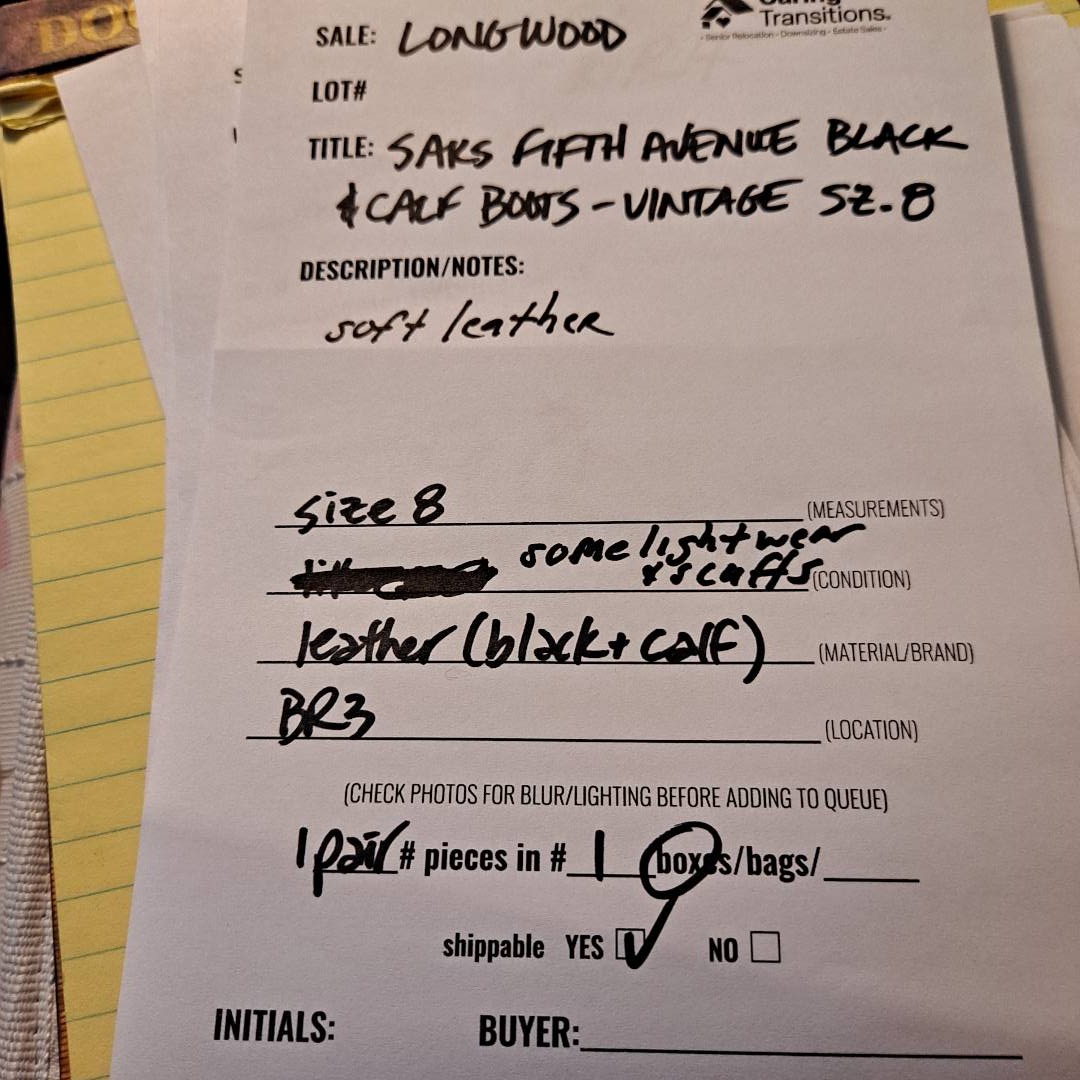 DO
Caring
Transitions.
- Senior Relocation - Downsizing - Estate Sales -
SALE: LONGWOOD
LOT#
TITLE: SAKS FIFTH AVENUE BLACK
& CALF BOOTS - VINTAGE SZ. 8
DESCRIPTION/NOTES:
soft leather
size 8 (MEASUREMENTS)
some light wear
& scuffs (CONDITION)
leather (black + calf) (MATERIAL/BRAND)
BR3 (LOCATION)
(CHECK PHOTOS FOR BLUR/LIGHTING BEFORE ADDING TO QUEUE)
1 pair # pieces in # 1 boxes/bags/
shippable YES NO
INITIALS: BUYER: